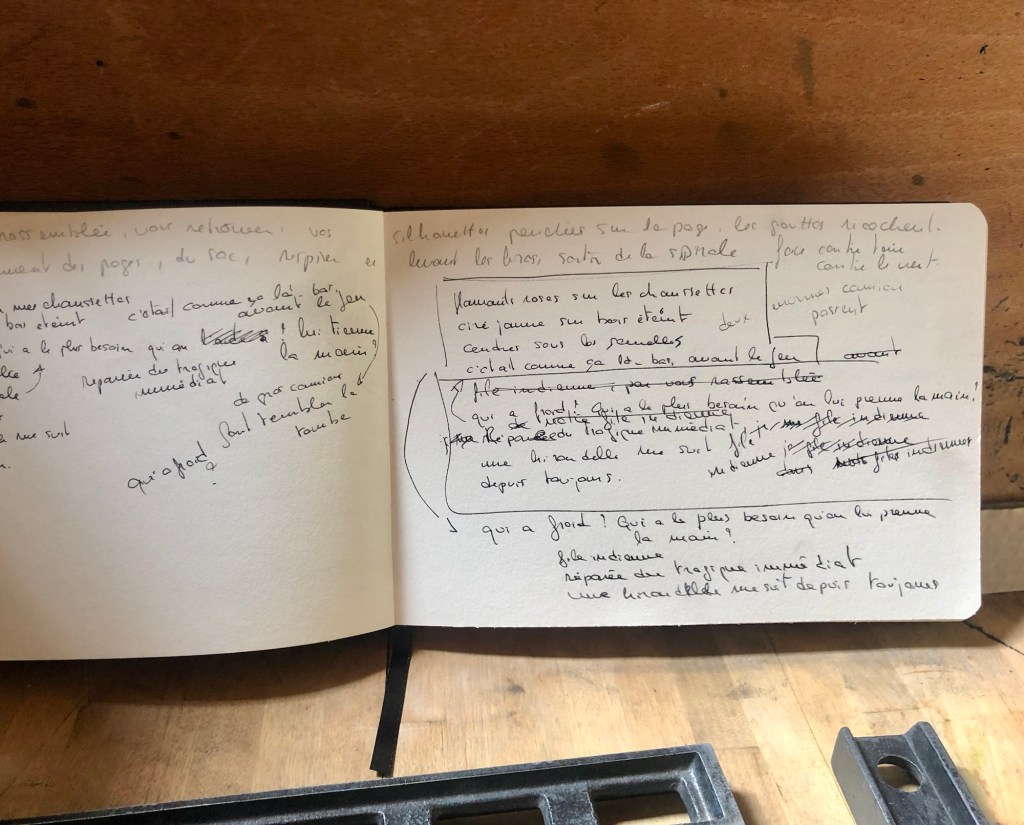 rassemblée, vous retrouver, vos
ment des pages, du sac, respirer
mes chaussettes
bois éteint c'était comme ça là-bas,
avant le feu
qui a le plus besoin qu'on lui tienne
la main ?
réparée du tragique
immédiat
de gros camions
font trembler la
tombe
me suit
qui a froid ?
silhouettes penchées sur la page, les gouttes ricochent.
levant les bras, sortir de la spirale
face contre terre
contre le vent
camion
passent
flamants roses sur les chaussettes
ciré jaune sur bois éteint
deux
cendres sous les semelles
c'était comme ça là-bas, avant le feu
avant
file indienne ; par vous rassemblée
qui a froid ? Qui a le plus besoin qu'on lui prenne la main ?
de notre file indienne
réparée du tragique immédiat, je file indienne
une hirondelle me suit file
indienne je file indienne
dans file indienne
depuis toujours.
qui a froid ? Qui a le plus besoin qu'on lui prenne
la main ?
file indienne
réparée du tragique immédiat
une hirondelle me suit depuis toujours